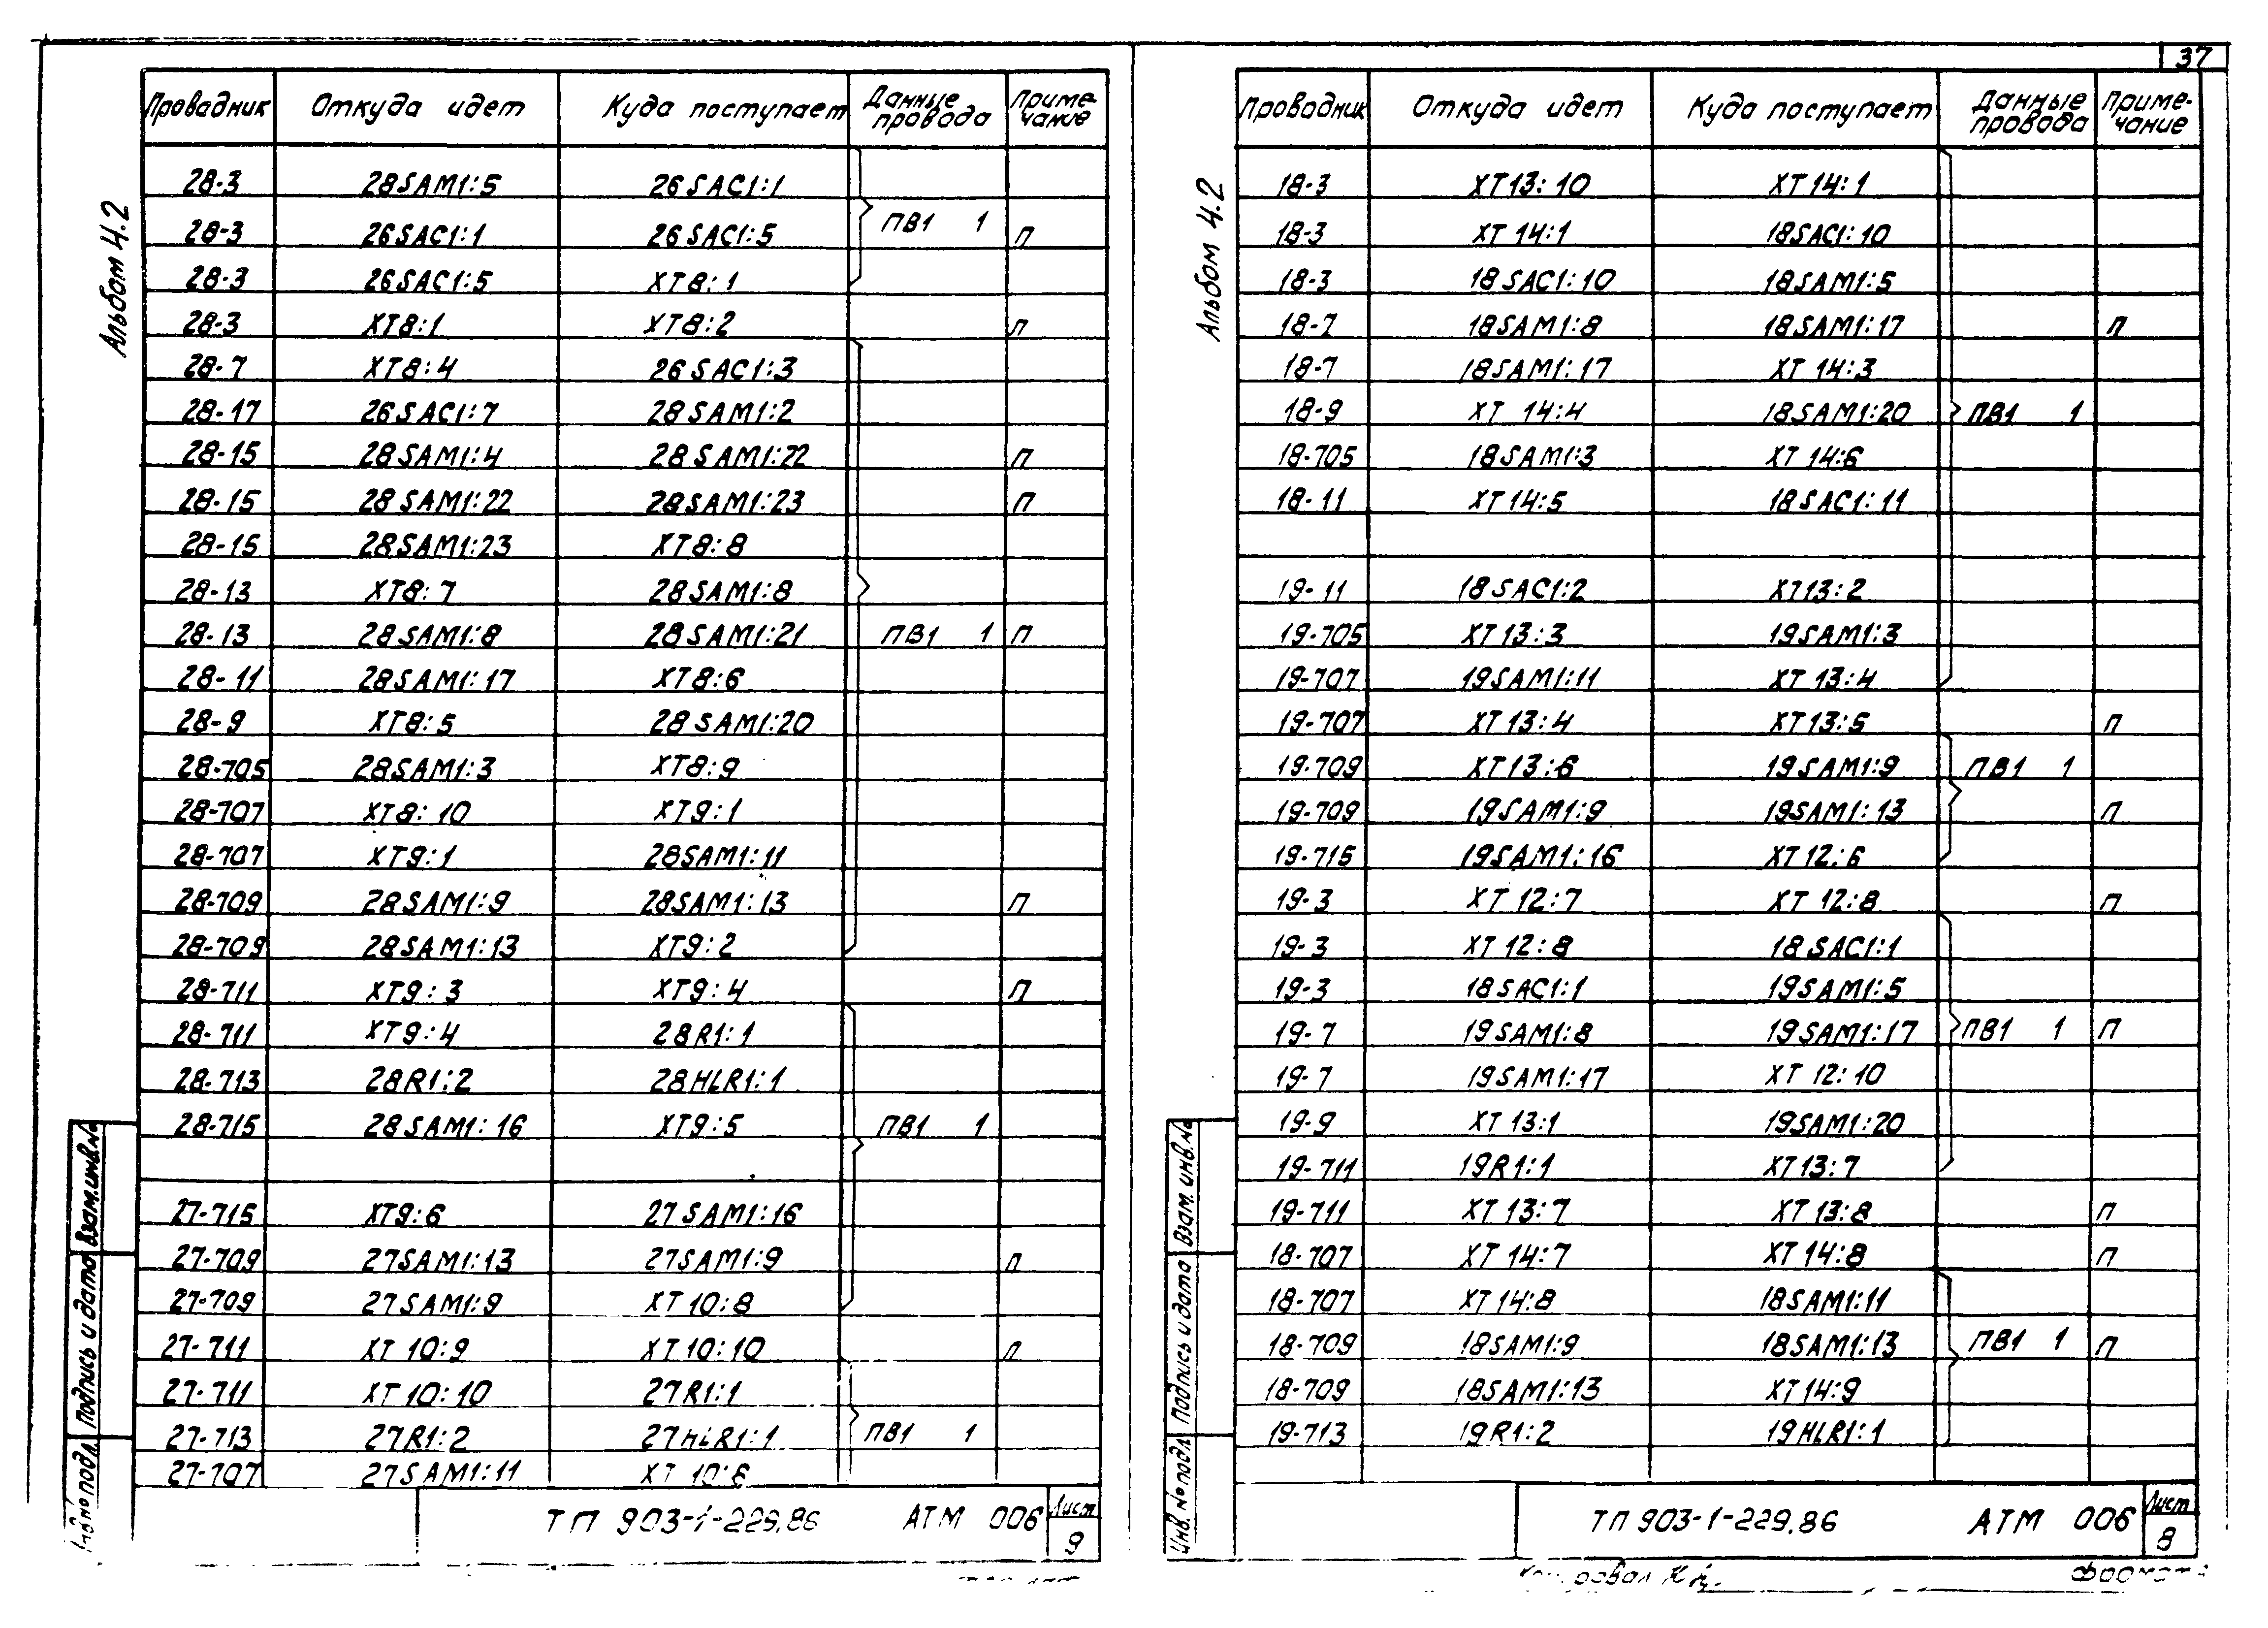 37
Альбом 4.2
Проводник Откуда идет Куда поступает Данные провода Приме-чание
28-3 28SAM1:5 26SAC1:1
28-3 26SAC1:1 26SAC1:5 ПВ1 1 П
28-3 26SAC1:5 XT8:1
28-3 XT8:1 XT8:2 П
28-7 XT8:4 26SAC1:3
28-17 26SAC1:7 28SAM1:2
28-15 28SAM1:4 28SAM1:22 П
28-15 28SAM1:22 28SAM1:23 П
28-15 28SAM1:23 XT8:8
28-13 XT8:7 28SAM1:8
28-13 28SAM1:8 28SAM1:21 ПВ1 1 П
28-11 28SAM1:17 XT8:6
28-9 XT8:5 28SAM1:20
28-705 28SAM1:3 XT8:9
28-707 XT8:10 XT9:1
28-707 XT9:1 28SAM1:11
28-709 28SAM1:9 28SAM1:13 П
28-709 28SAM1:13 XT9:2
28-711 XT9:3 XT9:4 П
28-711 XT9:4 28R1:1
28-713 28R1:2 28HLR1:1
28-715 28SAM1:16 XT9:5 ПВ1 1
27-715 XT9:6 27SAM1:16
27-709 27SAM1:13 27SAM1:9 П
27-709 27SAM1:9 XT10:8
27-711 XT10:9 XT10:10 П
27-711 XT10:10 27R1:1
27-713 27R1:2 27HLR1:1 ПВ1 1
27-707 27SAM1:11 XT10:6
Взам.инв.№
Подпись и дата
Инв.№ подл.
ТП 903-1-229.86 АТМ 006 Лист 9
Альбом 4.2
Проводник Откуда идет Куда поступает Данные провода Приме-чание
18-3 XT13:10 XT14:1
18-3 XT14:1 18SAC1:10
18-3 18SAC1:10 18SAM1:5
18-7 18SAM1:8 18SAM1:17 П
18-7 18SAM1:17 XT14:3
18-9 XT14:4 18SAM1:20 ПВ1 1
18-705 18SAM1:3 XT14:6
18-11 XT14:5 18SAC1:11
19-11 18SAC1:2 XT13:2
19-705 XT13:3 19SAM1:3
19-707 19SAM1:11 XT13:4
19-707 XT13:4 XT13:5 П
19-709 XT13:6 19SAM1:9 ПВ1 1
19-709 19SAM1:9 19SAM1:13 П
19-715 19SAM1:16 XT12:6
19-3 XT12:7 XT12:8 П
19-3 XT12:8 18SAC1:1
19-3 18SAC1:1 19SAM1:5
19-7 19SAM1:8 19SAM1:17 ПВ1 1 П
19-7 19SAM1:17 XT12:10
19-9 XT13:1 19SAM1:20
19-711 19R1:1 XT13:7
19-711 XT13:7 XT13:8 П
18-707 XT14:7 XT14:8 П
18-707 XT14:8 18SAM1:11
18-709 18SAM1:9 18SAM1:13 ПВ1 1 П
18-709 18SAM1:13 XT14:9
19-713 19R1:2 19HLR1:1
Взам. инв.№
Подпись и дата
Инв. № подл.
ТП 903-1-229.86 АТМ 006 Лист 8